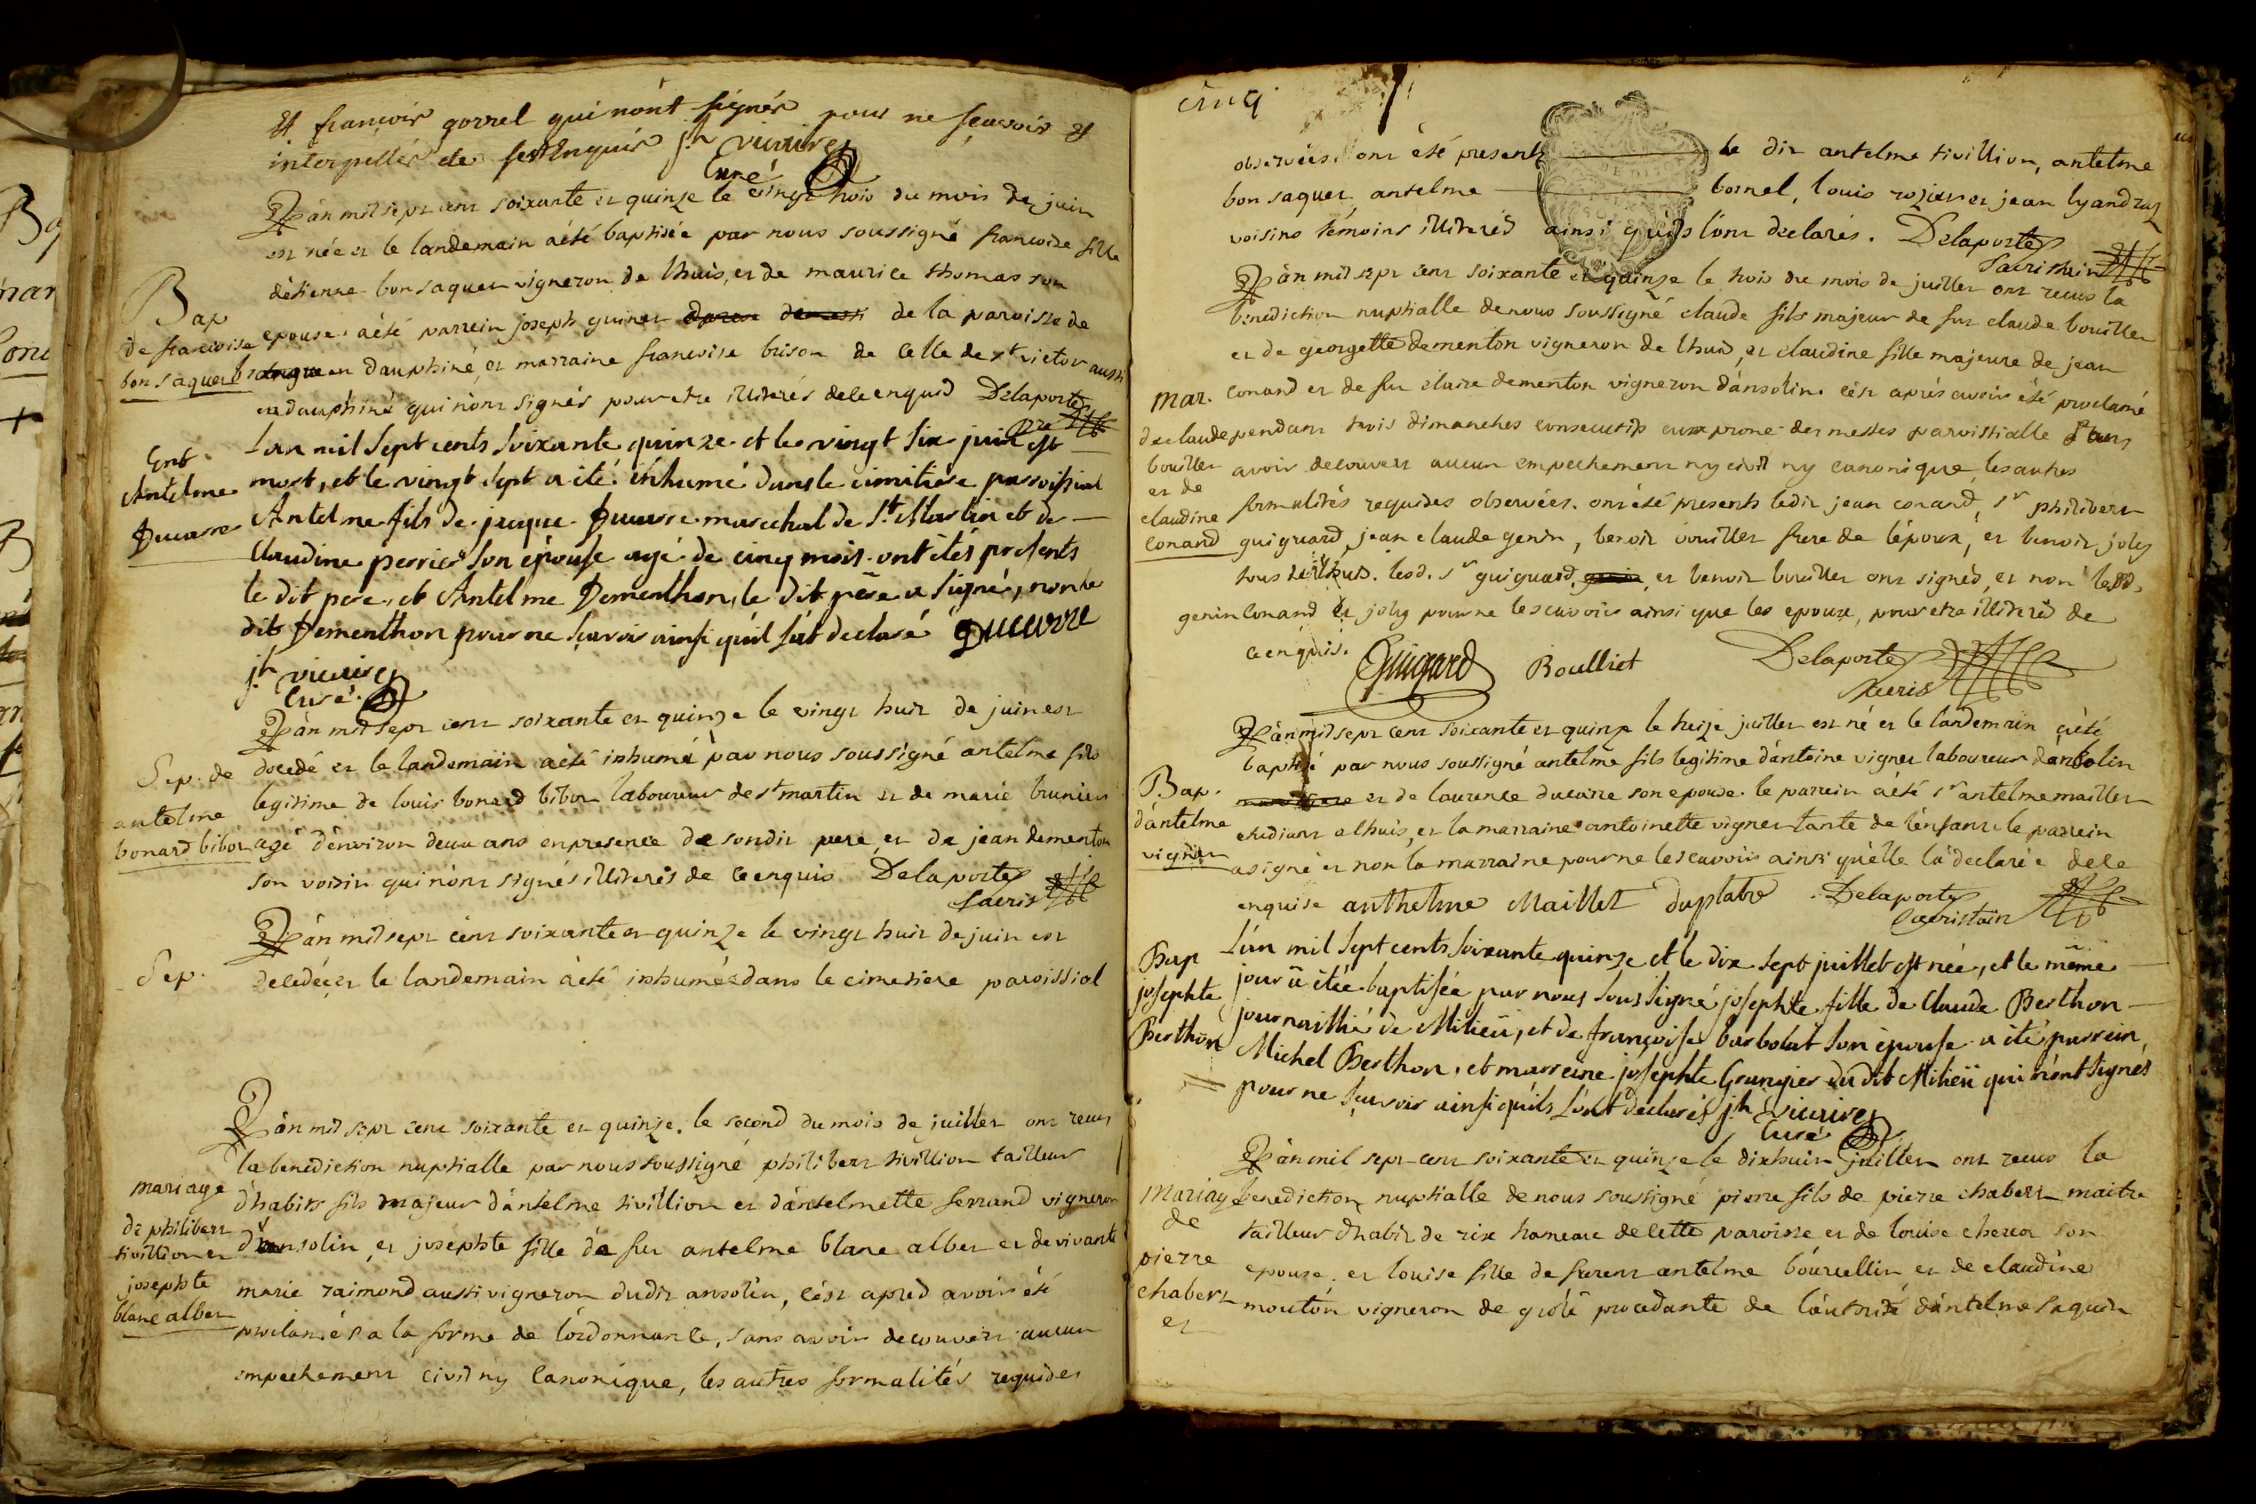 et françois gorrel qui nónt signés pour ne sçavoir et
interpellés de enquis j.h vicaire
Curé
L'an mil sept cent soixante et quinze le vingt trois du mois de juin
est née et le landemain a été baptisée par nous soussigné francoise fille
d'etienne bonsaquet vigneron de lhuis, et de maurice thomas son
Bap
de francoise
bonsaquet
epouse. a été parrein joseph guinet de la paroisse de
en dauphiné, et marraine francoise brison de celle de st victor aussi
en dauphiné qui n'ont signés pour etre illiterés de ce enquis Delaporte
L'an mil sept cents soixante quinze et le vingt six juin est
Ent
Antelme
Ducarre
mort, et le vingt sept a été inhumé dans le cimitiere parroissial
Antelme fils de jacque Ducarre marechal de St. Martin et de
Claudine perrier son épouse agé de cinq mois. ont étés présents
le dit pere, et Antelme Dementhon, le dit père a signé, non le
dit Dementhon pour ne sçavoir ainsi quil l'at declaré Ducarre
j.h vicaire
Curé
L'an mil sept cent soixante et quinze le vingt huit de juin est
Sep. de
antelme
bonard bibot
decedé et le landemain a été inhumé par nous soussigné antelme fils
legitime de louis bonard bibot laboureur de st martin et de marie brunier
agé d'environ deux ans en presence de sondit pere, et de jean dementon
son voisin qui n'ont signés illiterés de ce enquis Delaporte
sacris
L'an mil sept cent soixante et quinze le vingt huit de juin est
Sep.
decedée, et le landemain a été inhumée dans le cimetiere paroissial
L'an mil sept cent soixante et quinze. le second du mois de juillet ont recus
la benediction nuptialle par nous soussigné philibert tivillion tailleur
mariage
de philibert
tivillion et
josephte
blanc alber
d'habits fils majeur d'antelme tivillion et d'antelmette ferrand vigneron
d'ansolin, et josephte fille de feu antelme blanc alber et de vivante
marie raimond aussi vigneron dudit ansolin, c'est apres avoir été
proclamés a la forme de l'ordonnance, sans avoir decouvert aucun
empechement civil ny canonique, les autres formalités requises
cinq
observées. ont été presents le dit antelme tivillion, antelme
bonsaquet, antelme bornel, louis rozier et jean lyandraz
voisins témoins illiterés ainsi qu'ils l'ont declarés. Delaporte
sacristain
L'an mil sept cent soixante et quinze le trois du mois de juillet ont recus la
benediction nuptialle de nous soussigné claude fils majeur de feu claude bouillet
et de georgette dementon vigneron de lhuis, et claudine fille majeure de jean
mar.
de claude
bouillet
et de
claudine
conand
conand et de feu claire dementon vigneron d'ansolin. c'est après avoir été proclamé
pendant trois dimanches consecutifs aux prone des messes paroissialle sans
avoir decouvert aucun empechement ny civil ny canonique, les autres
formalités requises observées. ont été presents ledit jean conand, sr philibert
guiguard, jean claude genin, benoit bouillet frere de l'époux, et benoit joly
tous de lhuis. lesd. sr guiguard, et benoit bouillet ont signés, et non lesd.
genin conand et joly pour ne le scavoir ainsi que les epoux, pour etre illiterés de
ce enquis.
Guigard Boulliet Delaporte
sacris
L'an mil sept cent soixante et quinze le treize juillet est né et le landemain a été
baptisé par nous soussigné antelme fils legitime d'antoine vignet laboureur d'ansolin
Bap.
d'antelme
vignet
et de laurence ducarre son epouse. le parrein a été sr antelme maillet
etudiant a lhuis, et la marraine antoinette vignet tante de l'enfant. le parrein
a signé et non la marraine pour ne le scavoir ainsi qu'elle l'a declarée de ce
enquise anthelme Maillet duplatre Delaporte
sacristain
Bap
josephte
Berthon
L'an mil sept cents soixante quinze et le dix sept juillet est née, et le même
jour a étée baptisée par nous soussigné josephte fille de Claude Berthon
journaillié de Milieü, et de françoise barbolat son épouse a été parrein
Michel Berthon, et marreine josephte Grangier du dit Milieü qui n'ont signés
pour ne sçavoir ainsi quils l'ont declarés j.h vicaire
Curé
L'an mil sept cent soixante et quinze le dixhuit juillet ont recus la
mariage
de
pierre
chabert
et
benediction nuptialle de nous soussigné pierre fils de pierre chabert maitre
tailleur d'habit de rix hameau de cette paroisse et de louise son
epouse. et louise fille de antelme bourcellin et de claudine
mouton vigneron de procedante de l'autorité d'antelme saquin